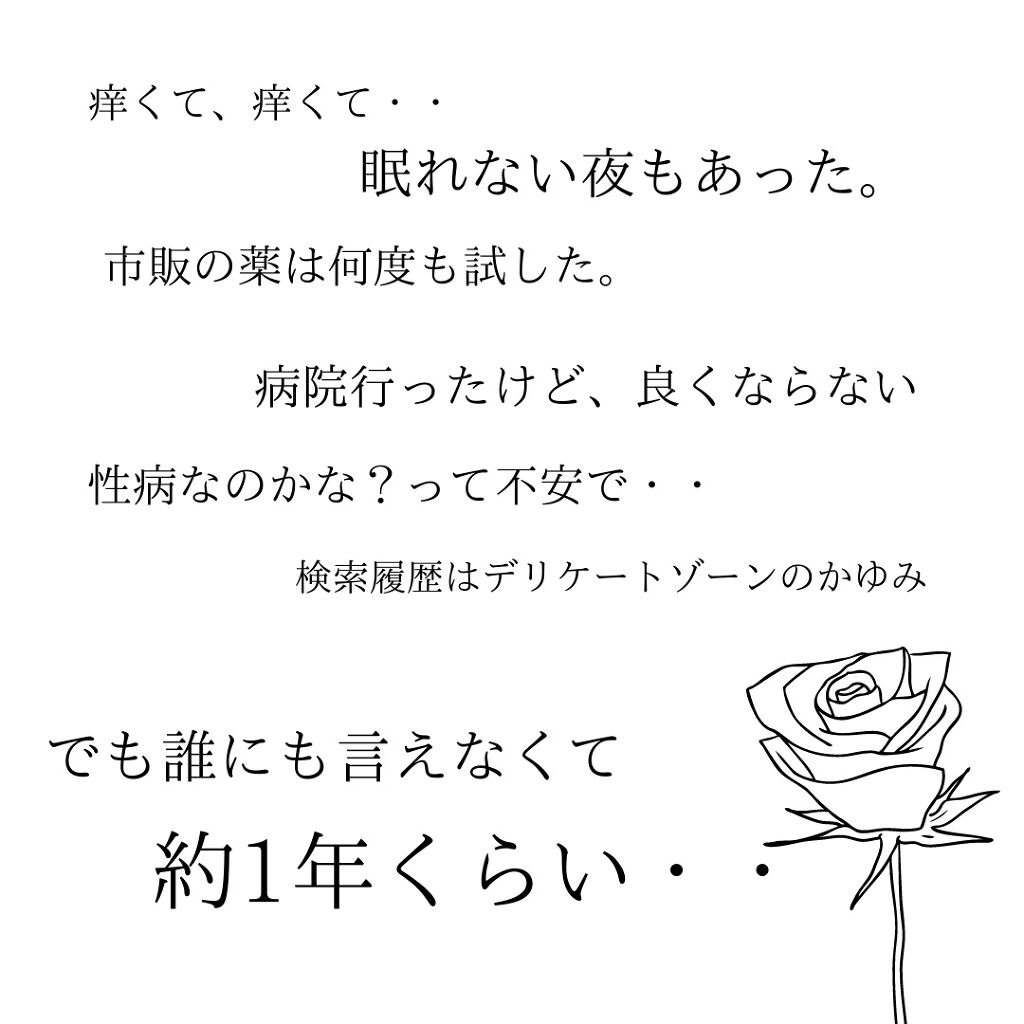 痒くて、痒くて・・
眠れない夜もあった。
市販の薬は何度も試した。
病院行ったけど、良くならない
性病なのかな？って不安で・・
検索履歴はデリケートゾーンのかゆみ
でも誰にも言えなくて
約1年くらい・・